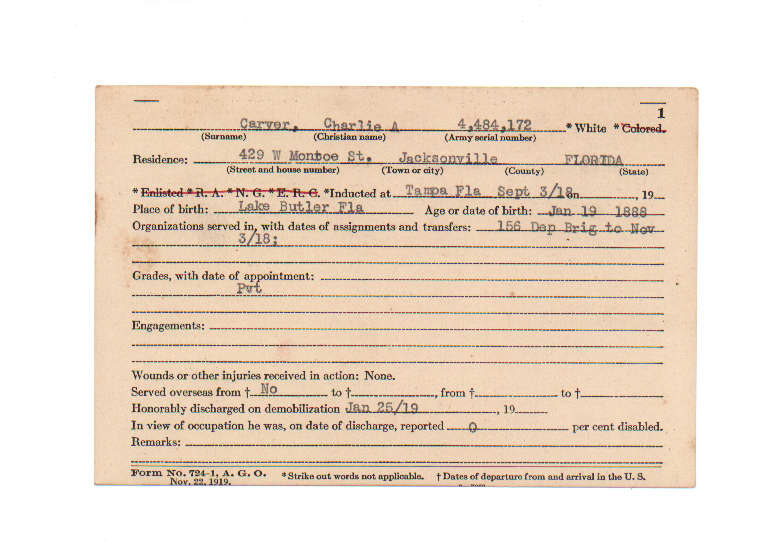 1
Carver, Charlie A 4,484,172 * White * Colored.
(Surname) (Christian name) (Army serial number)
Residence: 429 W Monroe St. Jacksonville FLORIDA
(Street and house number) (Town or city) (County) (State)
* Enlisted * R. A. * N. G. * E. R. C. *Inducted at Tampa Fla Sept 3/18 on , 19
Place of birth: Lake Butler Fla Age or date of birth: Jan 19 1888
Organizations served in, with dates of assignments and transfers: 156 Dep Brig to Nov
3/18;
Grades, with date of appointment:
Pvt
Engagements:
Wounds or other injuries received in action: None.
Served overseas from † No to †, from † to †
Honorably discharged on demobilization Jan 25/19, 19
In view of occupation he was, on date of discharge, reported 0 per cent disabled.
Remarks:
Form No. 724-1, A. G. O. *Strike out words not applicable. † Dates of departure from and arrival in the U. S.
Nov. 22, 1919.